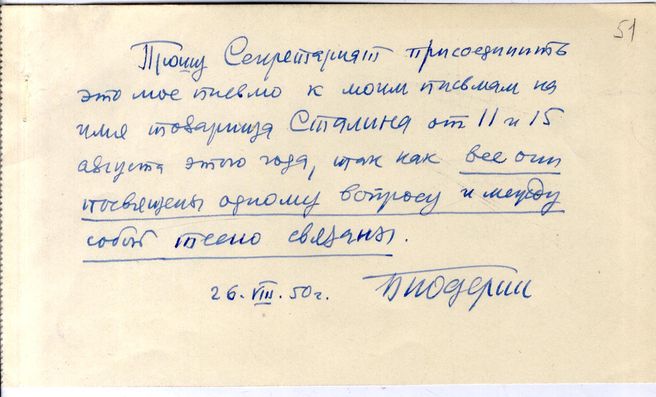 51
Прошу Секретариат присоединить
это мое письмо к моим письмам на
имя товарища Сталина от 11 и 15
августа этого года, так как все они
посвящены одному вопросу и между
собой тесно связаны.
26. VIII. 50 г.